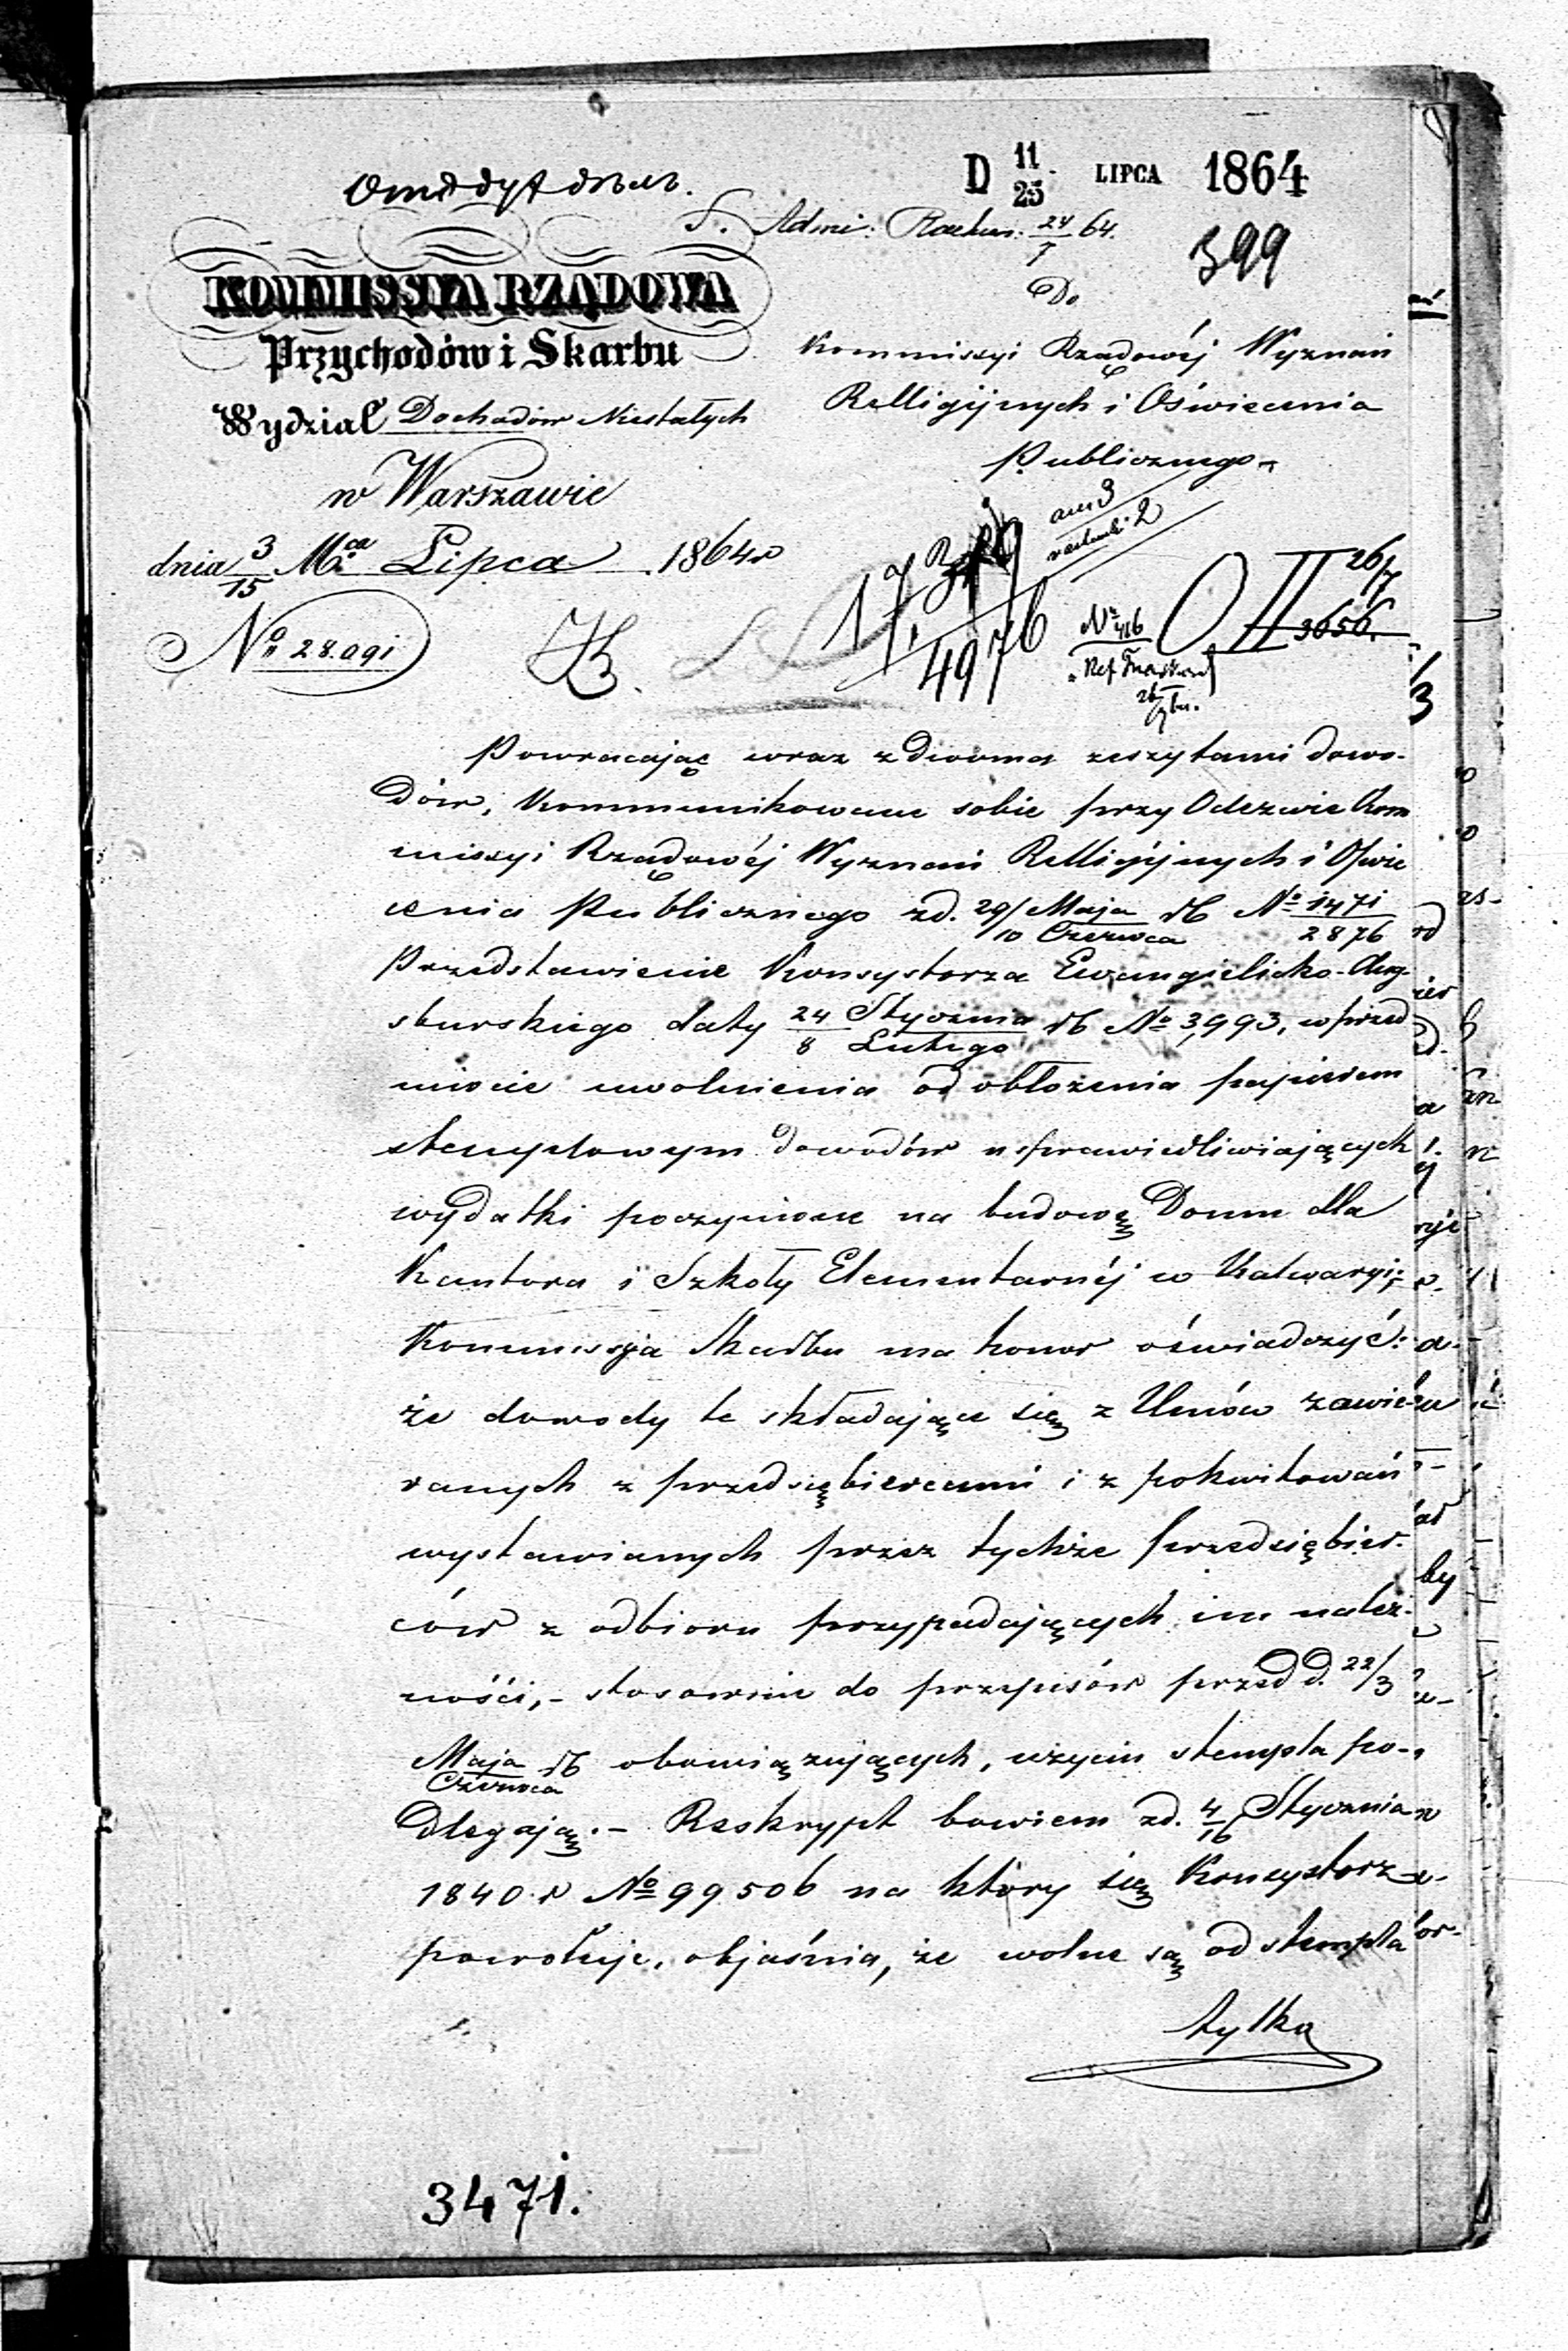 D 11/25 LIPCA 1864
S. Admi: Rachun: 24/7 64.
399
KOMMISSYA RZĄDOWA
Przychodów i Skarbu
Wydział Dochodów Niestałych
w Warszawie
dnia 3/15 Mca Lipca 1864 r
No 28.091
Do
Kommissyi Rządowéj Wyznań
Relligijnych i Oświecenia
Publicznego
17
4976
No 416
26/7
3656.
Powracając wraz z dwoma zeszytami dowo-
dów, kommunikowane sobie przy Odezwie Kom
missyi Rządowéj Wyznań Relligijnych i Oświe
cenia Publicznego z d. 29/10 Maja/Czerwca rb No 1471/2876
Przedstawienie Konsystorza Ewangielicko-Aug-
sburskiego daty 24/8 Stycznia/Lutego rb No 3,993, w przed
miocie uwolnienia od obłożenia papierem
stemplowym dowodów usprawiedliwiających
wydatki poczynione na budowę Domu dla
Kantora i Szkoły Elementarnéj w Kalwaryi;
Kommissya Skarbu ma honor oświadczyć:
że dowody te składające się z Umów zawié-
ranych z przedsiębiercami i z pokwitowań
wystawianych przez tychże przedsiębier-
ców z odbioru przypadających im należ-
ności,- stosownie do przepisów przed d. 22/3
Maja/Czerwca rb obowiązujących, użyciu stempla po-
dlegają.- Reskrypt bowiem z d. 4/16 Stycznia
1840 r No 99506 na który się Konsystorz
powołuje, objaśnia, że wolne są od stempla
tylko
3471.